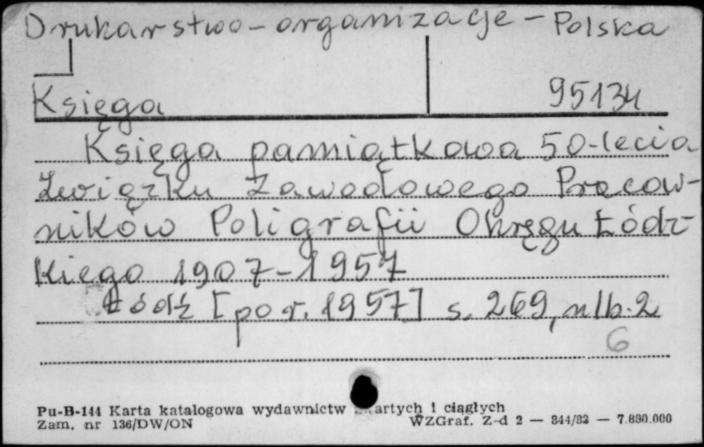 Drukarstwo - organizacje - Polska
Księga 95134
Księga pamiątkowa 50-lecia
Związku Zawodowego Pracow-
ników Poligrafii Okręgu Łódz-
kiego 1907-1957
Łódź [po r. 1957] s. 269, nlb. 2
6
Pu-B-144 Karta katalogowa wydawnictw zwartych i ciągłych
Zam. nr 136/DW/ON WZGraf. Z-d 2 — 344/83 — 7.830.000